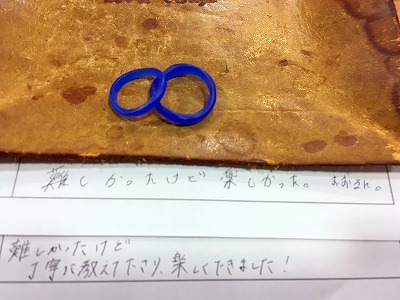 難しかったけど 楽しかった。
難しかったけど
丁寧に教えて下さり、楽しくできました！